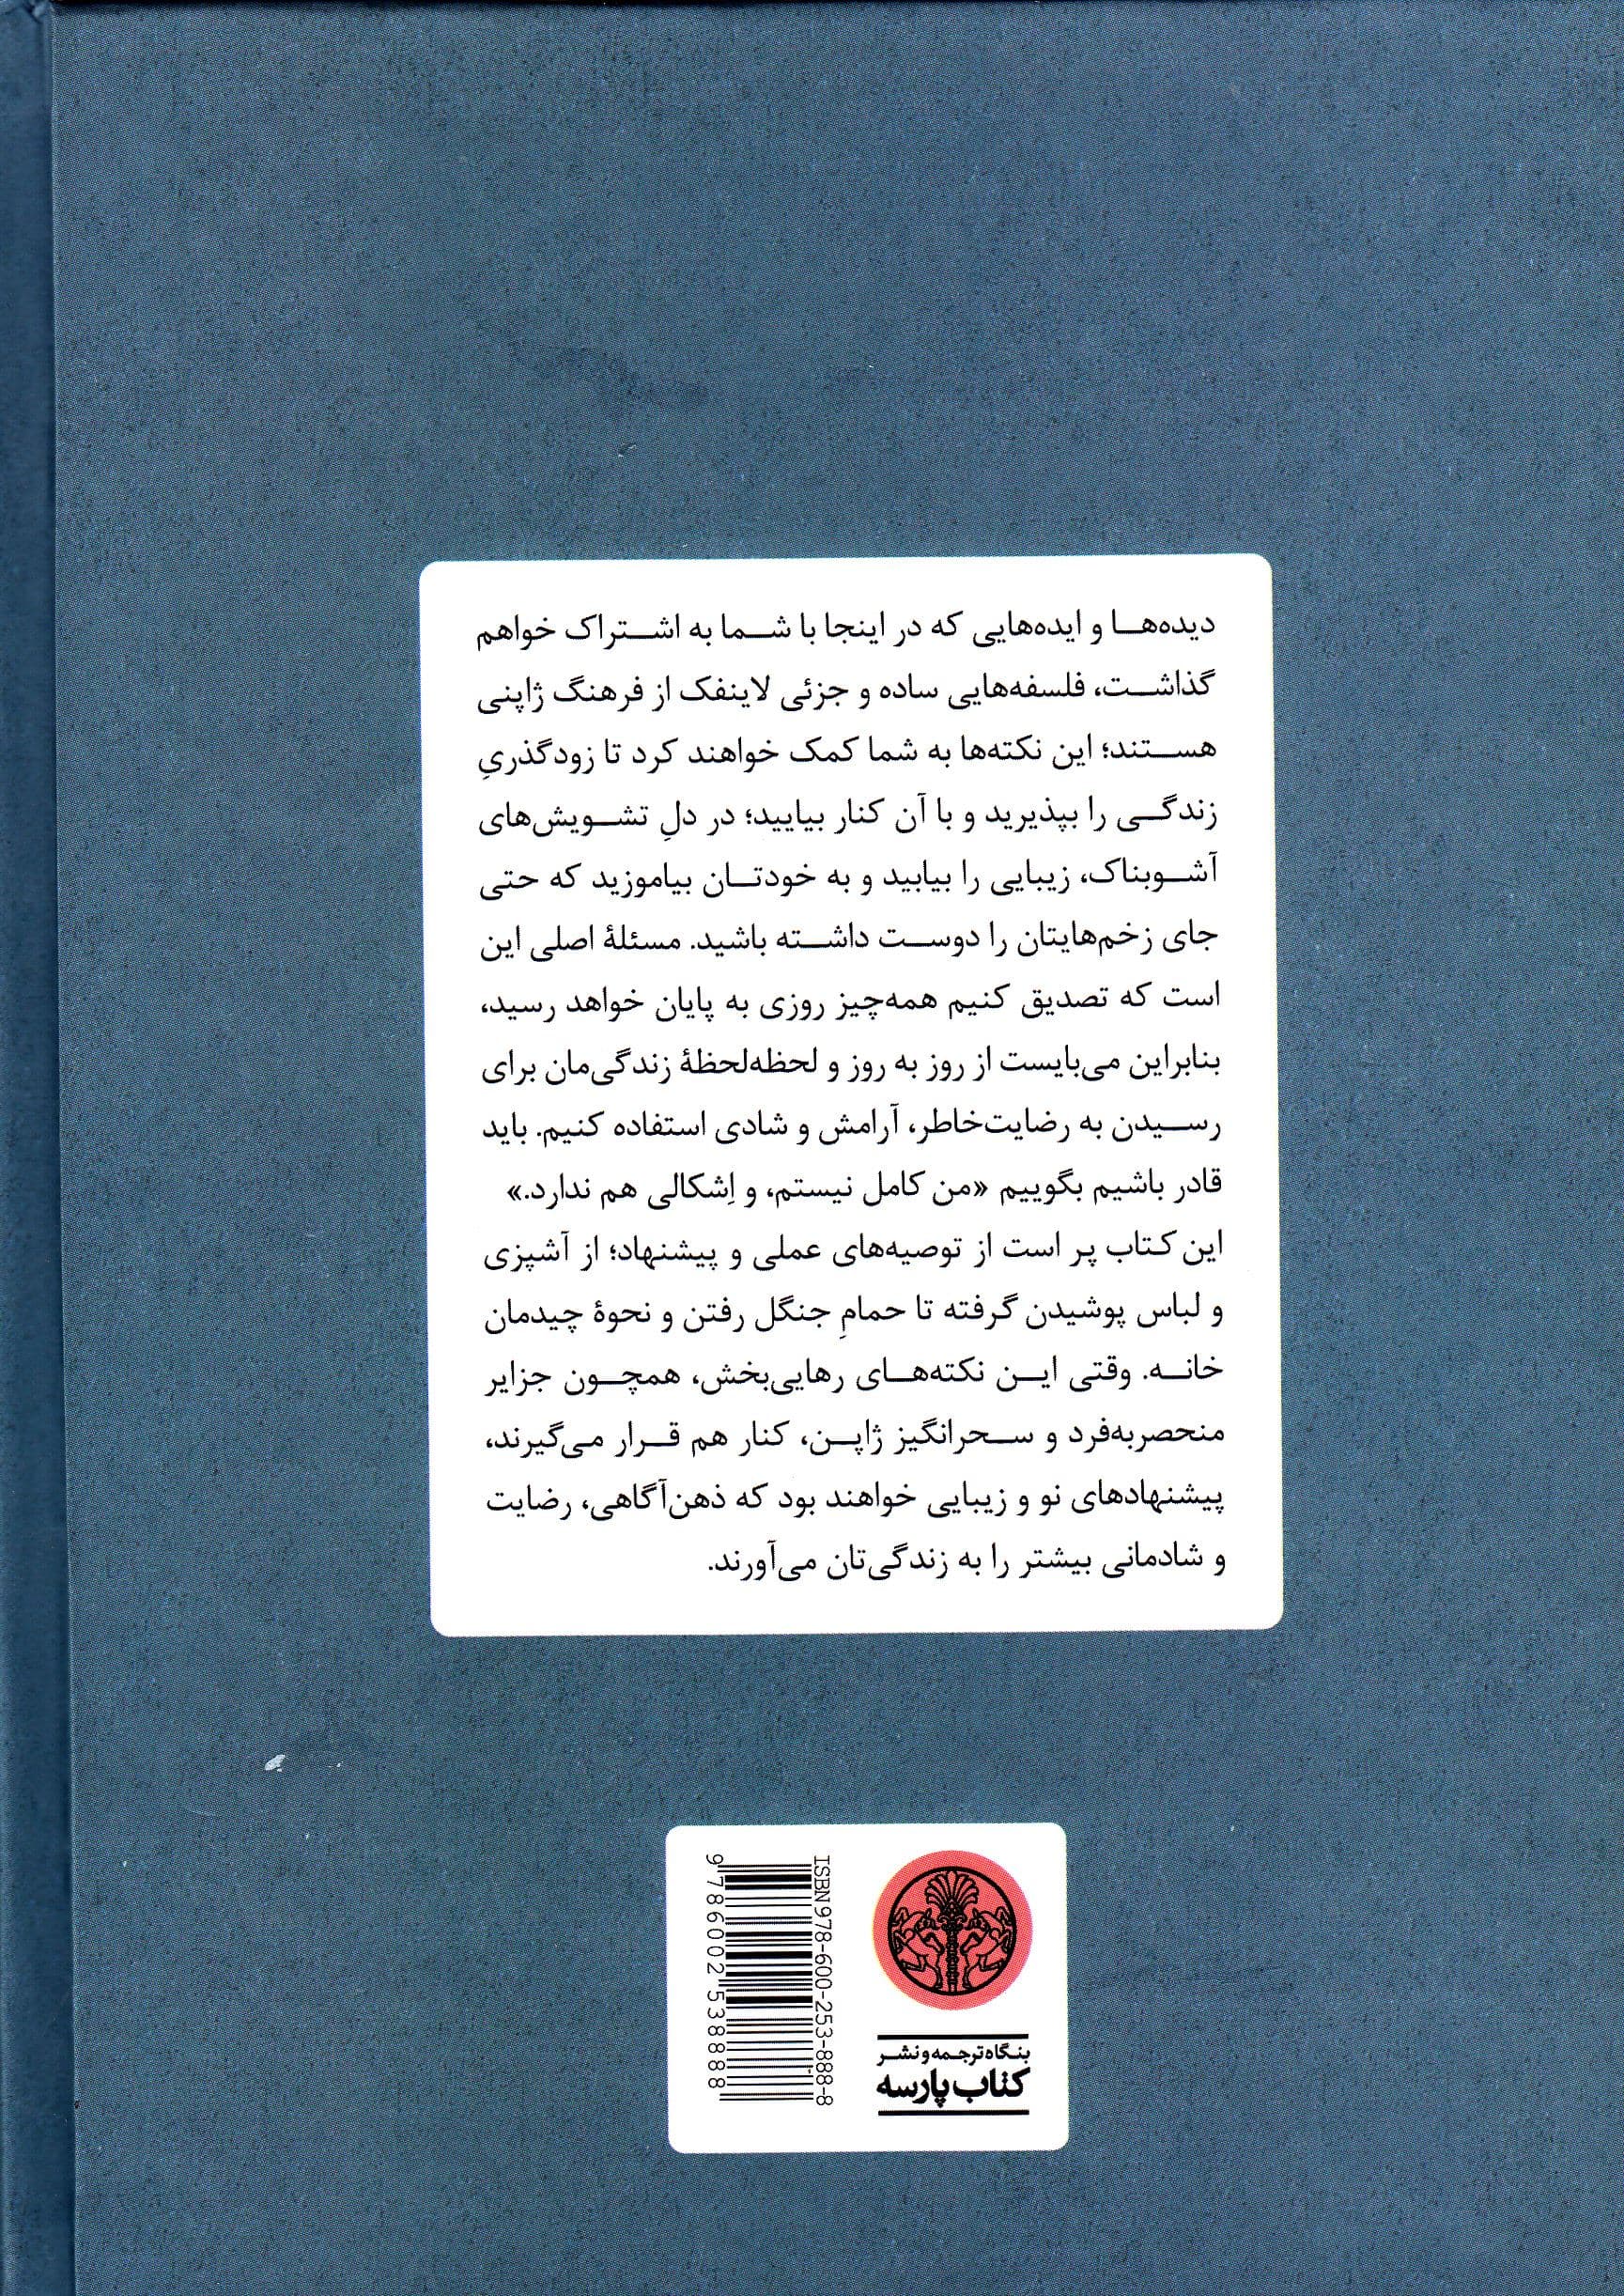 دیده‌ها و ایده‌هایی که در اینجا با شما به اشتراک خواهم
گذاشت، فلسفه‌هایی ساده و جزئی لاینفک از فرهنگ ژاپنی
هستند؛ این نکته‌ها به شما کمک خواهند کرد تا زودگذریِ
زندگی را بپذیرید و با آن کنار بیایید؛ در دلِ تشویش‌های
آشوبناک، زیبایی را بیابید و به خودتان بیاموزید که حتی
جای زخم‌هایتان را دوست داشته باشید. مسئلهٔ اصلی این
است که تصدیق کنیم همه‌چیز روزی به پایان خواهد رسید،
بنابراین می‌بایست از روز به روز و لحظه‌لحظهٔ زندگی‌مان برای
رسیدن به رضایت‌خاطر، آرامش و شادی استفاده کنیم. باید
قادر باشیم بگوییم «من کامل نیستم، و اِشکالی هم ندارد.»
این کتاب پر است از توصیه‌های عملی و پیشنهاد؛ از آشپزی
و لباس پوشیدن گرفته تا حمامِ جنگل رفتن و نحوهٔ چیدمان
خانه. وقتی این نکته‌های رهایی‌بخش، همچون جزایر
منحصربه‌فرد و سحرانگیز ژاپن، کنار هم قرار می‌گیرند،
پیشنهادهای نو و زیبایی خواهند بود که ذهن‌آگاهی، رضایت
و شادمانی بیشتر را به زندگی‌تان می‌آورند.
بنگاه ترجمه و نشر
کتاب پارسه
ISBN 978-600-253-888-8
9 786002 538888